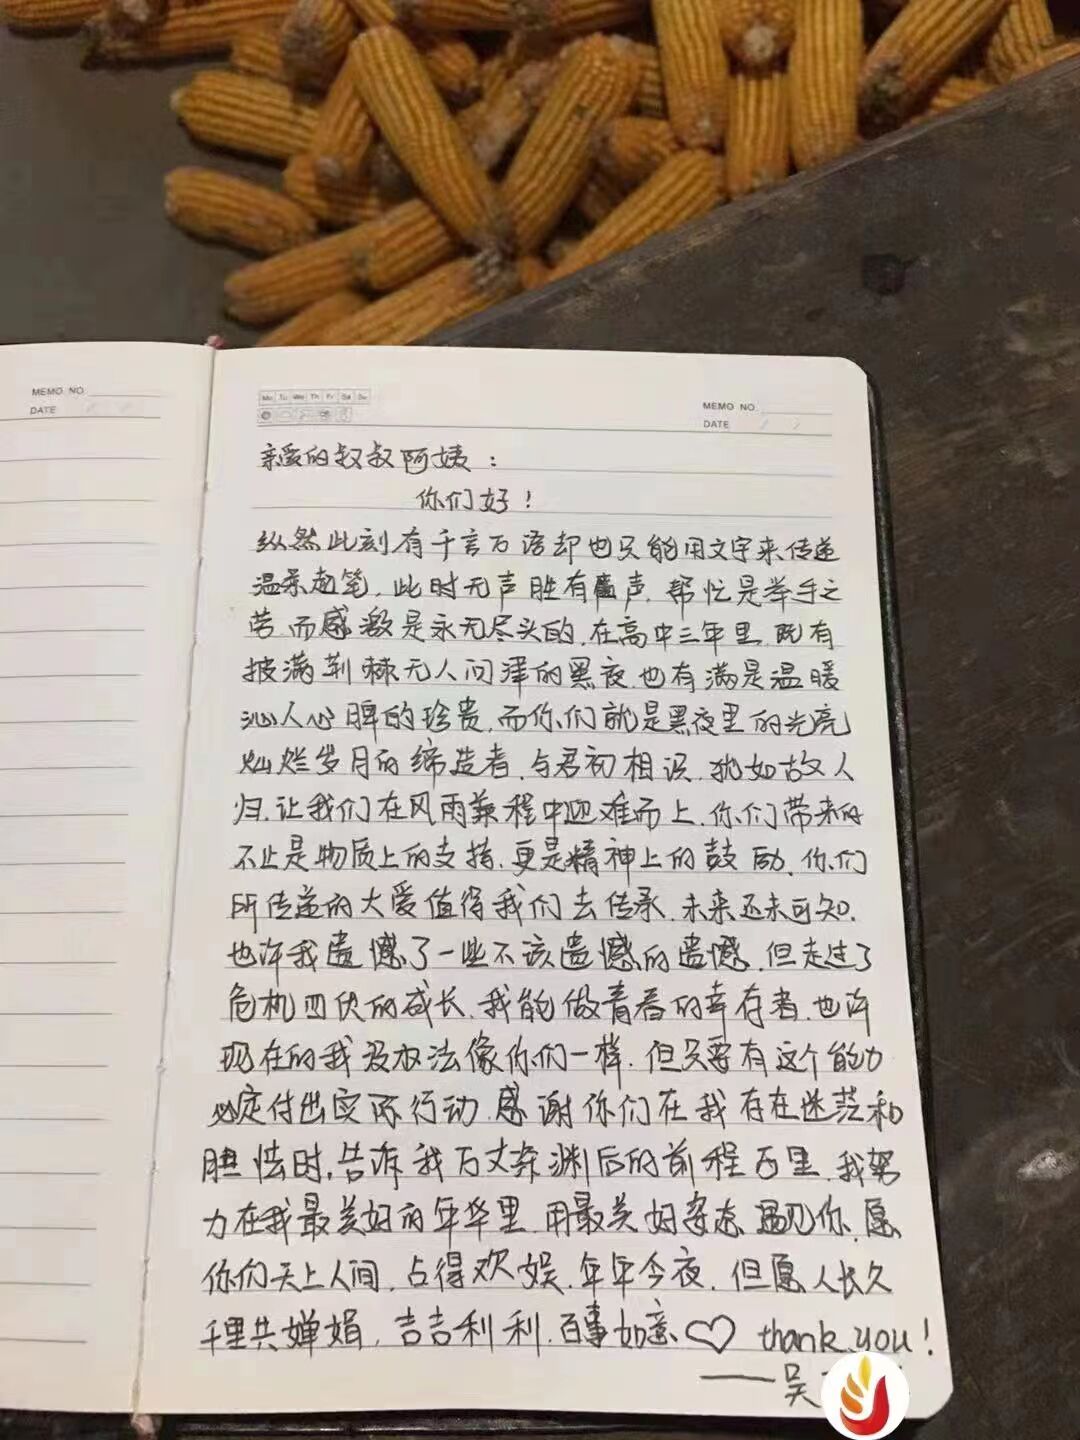 MEMO NO
DATE
Mo Tu We Th Fr Sa Su
MEMO NO
DATE
亲爱的叔叔阿姨：
你们好！
纵然此刻有千言万语却也只能用文字来传递
温柔起笔，此时无声胜有声，帮忙是举手之
劳，而感激是永无尽头的，在高中三年里，既有
披满荆棘无人问津的黑夜，也有满是温暖
沁人心脾的珍贵，而你们就是黑夜里的光亮
灿烂岁月的缔造者，与君初相识，犹如故人
归，让我们在风雨兼程中迎难而上，你们带来的
不止是物质上的支持，更是精神上的鼓励，你们
所传递的大爱值得我们去传承，未来还未可知，
也许我遗憾了一些不该遗憾的遗憾，但走过了
危机四伏的成长，我能做青春的幸存者，也许
现在的我没办法像你们一样，但只要有这个能力
必定付出实际行动，感谢你们在我存在迷茫和
胆怯时，告诉我万丈深渊后的前程万里，我努
力在我最美好的年华里，用最美好姿态遇见你，愿
你们天上人间，占得欢娱，年年今夜，但愿人长久
千里共婵娟，吉吉利利，百事如意♡ thank you！
——吴